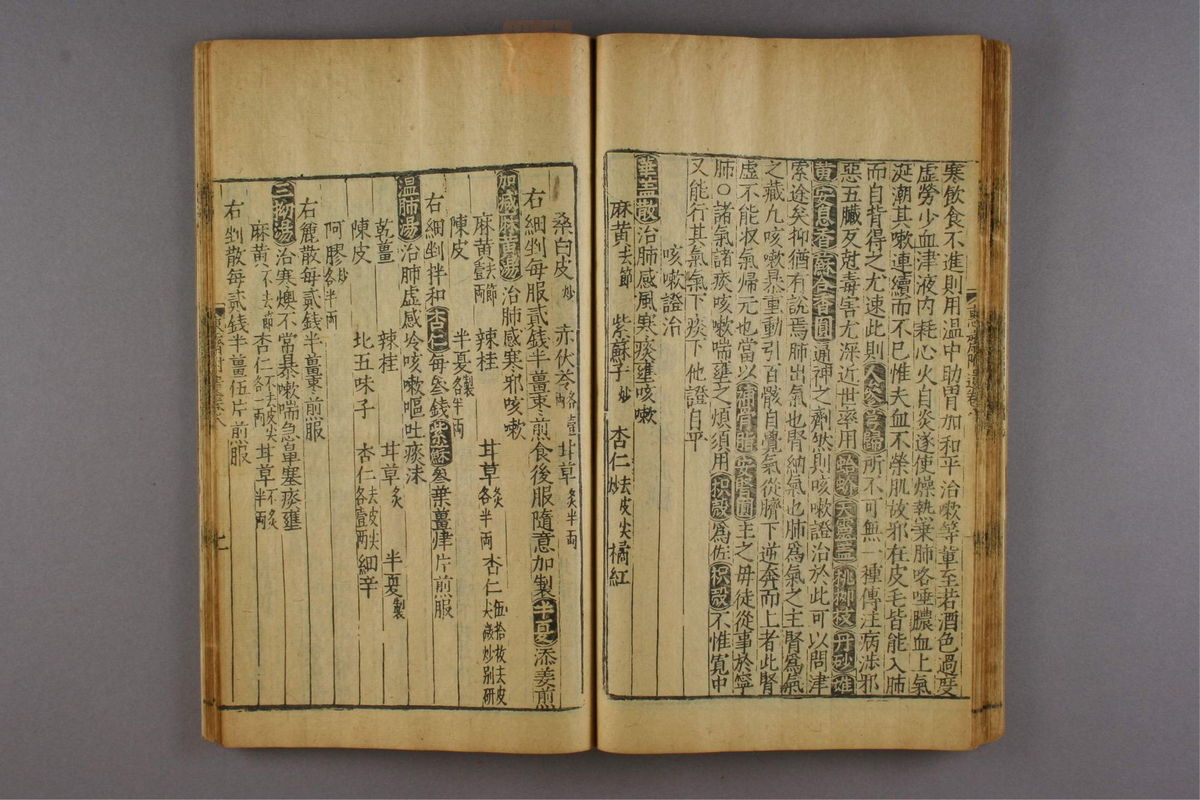 寒飲食不進則用温中助胃加和平治嗽等藥至若酒色過度
虚勞少血津液內耗心火自炎遂使燥熱乗肺咯唾膿血上氣
涎潮其嗽連續而不已惟夫血不榮肌故邪在皮毛皆能入肺
而自背得之尤速此則人參芎歸所不可無一種傳注病涉邪
惡五臟反尅毒害尤深近世率用蛤蚧天靈盖桃柳枝丹砂雄
黄安息香蘇合香圓通神之劑然則咳嗽證治於此可以問津
索途矣抑猶有說焉肺出氣也腎納氣也肺爲氣之主腎爲氣
之藏凡咳嗽暴重動引百骸自覺氣從臍下逆奔而上者此腎
虚不能収氣歸元也當以補骨脂安腎圓主之毋徒從事於寧
肺○諸氣諸痰咳嗽喘壅之煩須用枳殻爲佐枳殻不惟寛中
又能行其氣氣下痰下他證自平
咳嗽證治
華盖散治肺感風寒痰壅咳嗽
麻黄去節 紫蘇子炒 杏仁去皮尖炒 橘紅
桑白皮炒 赤伏苓各壹兩 甘草炙半兩
右細剉每服貳錢半薑棗煎食後服隨意加製半夏添姜煎
加减麻黄湯治肺感寒邪咳嗽
麻黄去節壹兩 辣桂 甘草炙各半兩 杏仁伍拾枚去皮尖微炒别研
陳皮 半夏製各半兩
右細剉拌和杏仁每叄錢紫蘇叄葉薑肆片煎服
温肺湯治肺虚感冷咳嗽嘔吐痰沫
乾薑 辣桂 甘草炙 半夏製
陳皮 北五味子 杏仁去皮尖各壹兩 細辛
阿膠炒各半兩
右麄散每貳錢半薑棗煎服
三拗湯治寒燠不常暴嗽喘急鼻塞痰壅
麻黄不去節 杏仁不去皮尖各一兩 甘草不炙半兩
右剉散每貳錢半薑伍片煎服